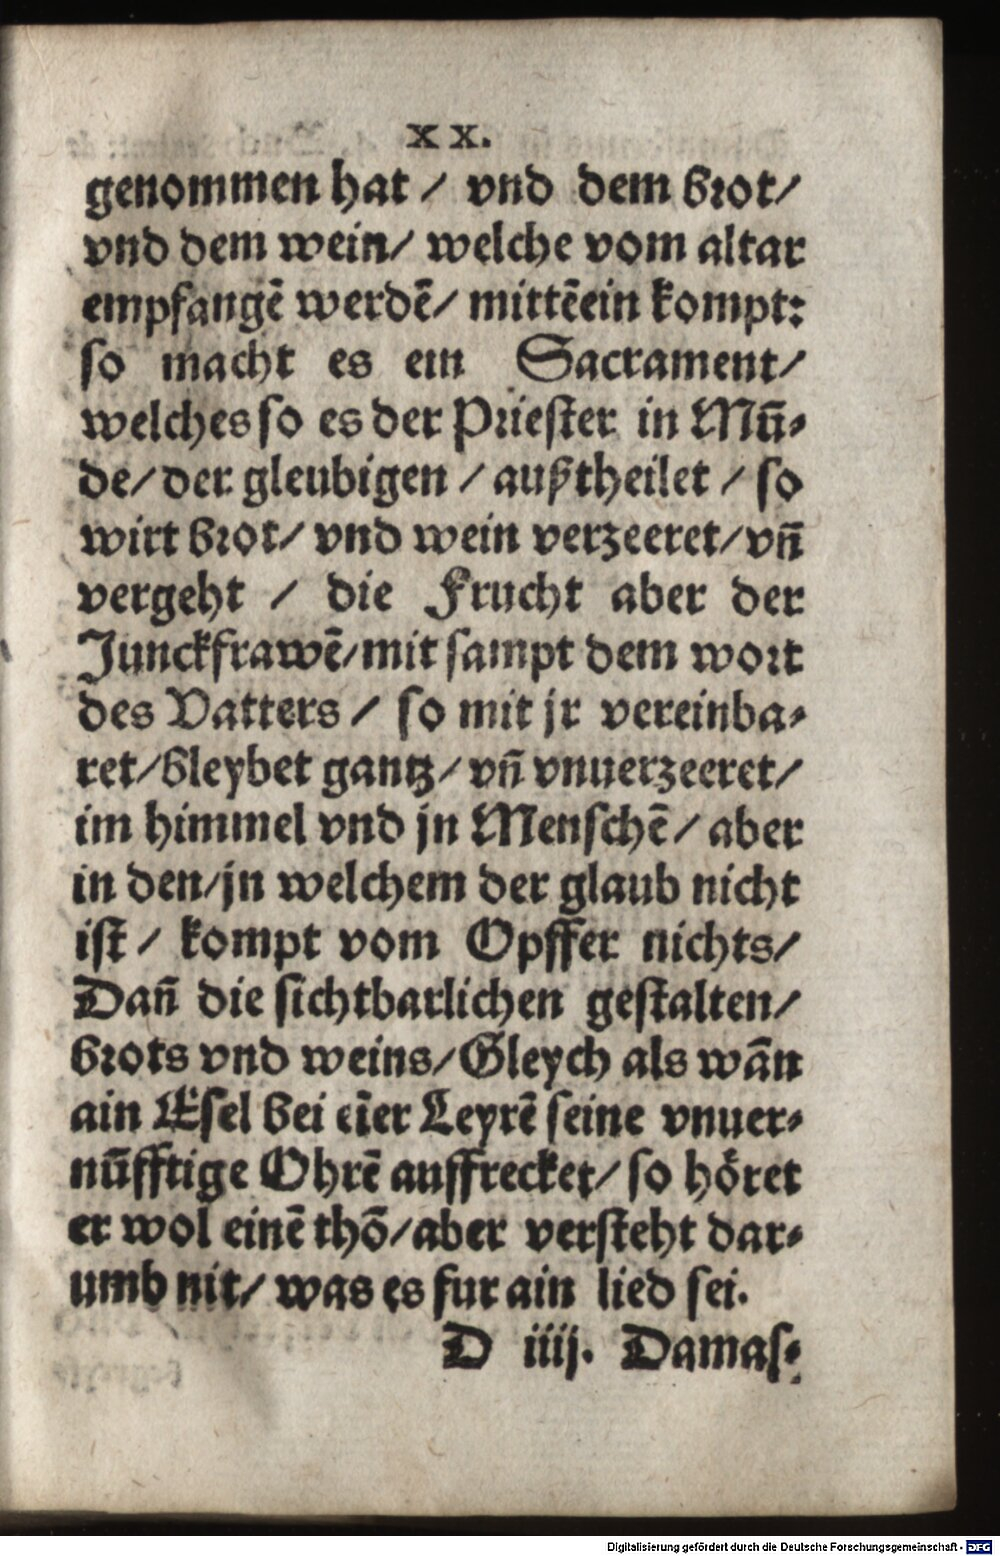 XX.
genommen hat / vnd dem brot/
vnd dem wein/ welche vom altar
empfangē werdē/ mittēein kompt:
so macht es ein Sacrament/
welches so es der Priester in Mūn⸗
de/ der gleubigen / außtheilet / so
wirt brot/ vnd wein verzeeret/ vn̄
vergeht / die Frucht aber der
Junckfrawē/ mit sampt dem wort
des Vatters / so mit jr vereinba⸗
ret/ bleybet gantz/ vn̄ vnuerzeeret/
im himmel vnd jn Menschē/ aber
in den/ jn welchem der glaub nicht
ist / kompt vom Opffer nichts/
Dan̄ die sichtbarlichen gestalten/
brots vnd weins/ Gleych als wān
ain Esel bei eīer Leyrē seine vnuer⸗
nūfftige Ohrē auffrecket/ so höret
er wol einē thō/ aber versteht dar⸗
umb nit/ was es fur ain lied sei.
D iiij. Damas⸗
Digitalisierung gefördert durch die Deutsche Forschungsgemeinschaft - DFG